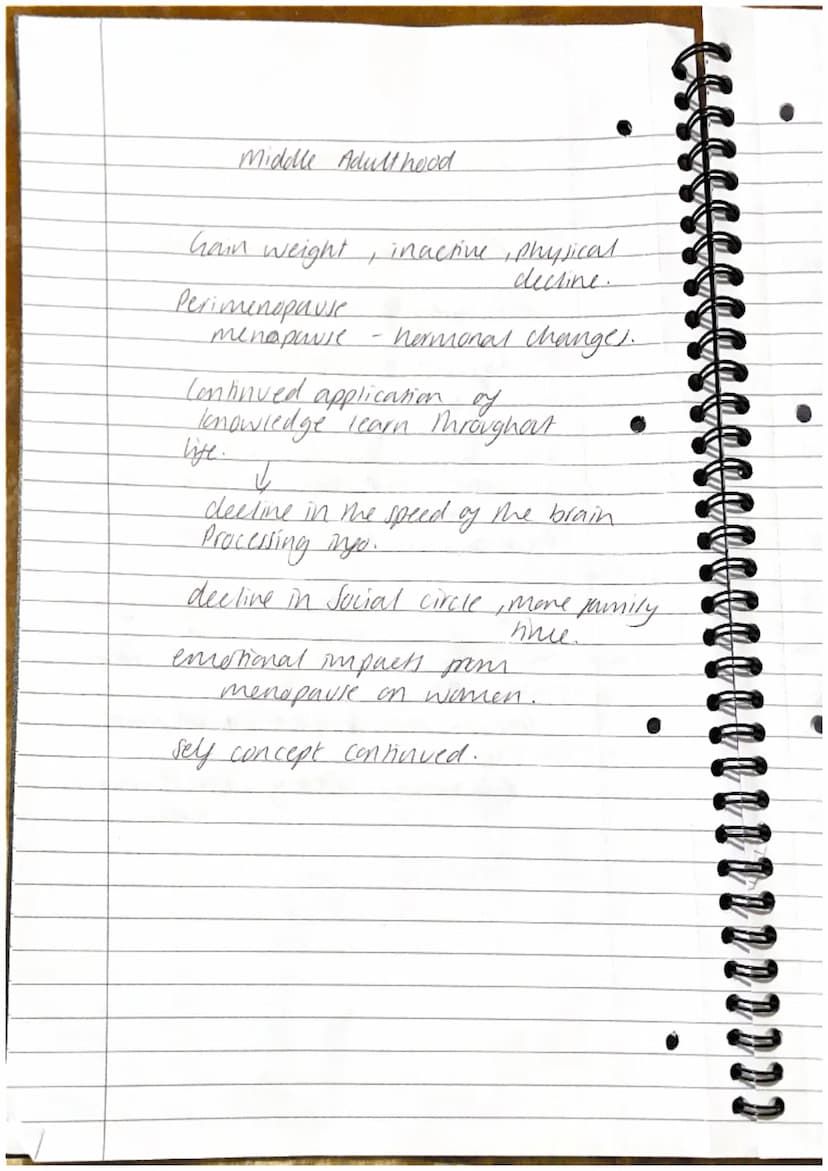 Middle Adulthood
Gain weight, inactive, physical
decline.
Perimenopause
menopause - hormonal changes.
Continued application of
knowledge learn throughout
life.
↓
decline in the speed of the brain
Processing info.
decline in Social circle, more family
time.
emotional impacts from
menopause on women.
Self concept continued.